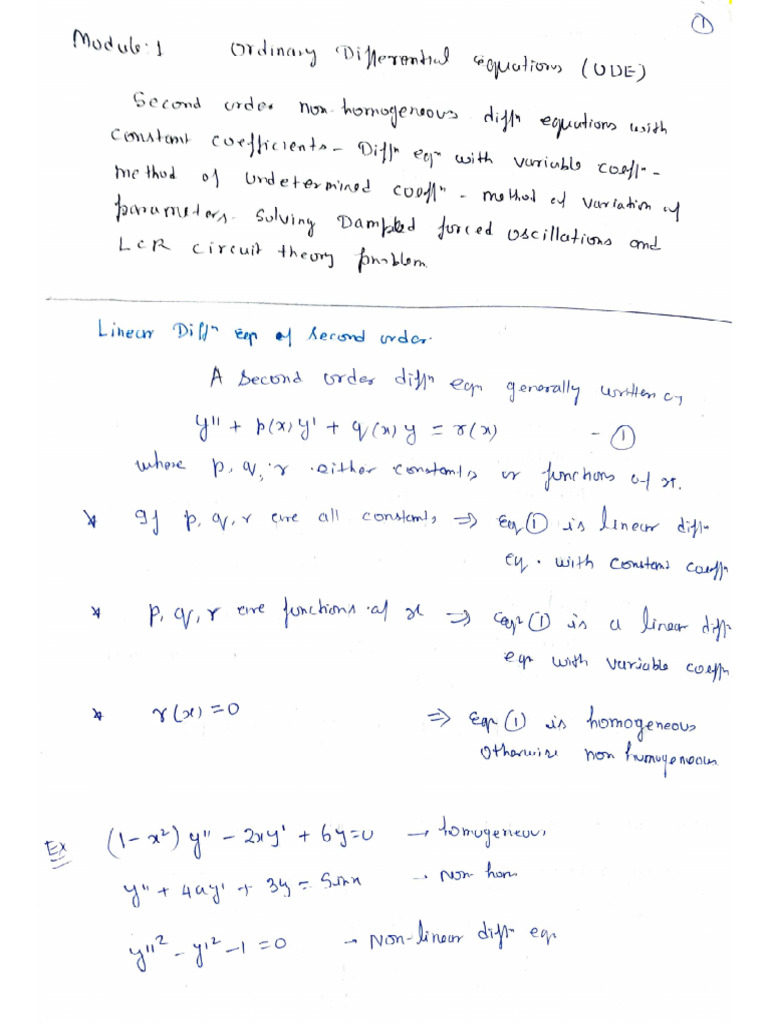 ①
Module:1 Ordinary Differential Equations (ODE)
Second order non-homogeneous diffⁿ equations with
constant coefficients - Diffⁿ eqⁿ with variable coeffⁿ -
method of undetermined coeffⁿ - method of variation of
parameters. Solving Dampled forced oscillations and
LCR circuit theory problem.
Linear Diffⁿ eqn of second order.
A second order diffⁿ eqn generally written as
y'' + p(x)y' + q(x)y = r(x) - ①
where p, q, r either constants or functions of x.
* If p, q, r are all constants ⇒ Eq ① is linear diffⁿ
eq. with constant coeffn
* p, q, r are functions of x ⇒ eqn ① is a linear diffn
eqn with variable coeffn
* r(x) = 0 ⇒ Eqn ① is homogeneous
Otherwise non homogeneous
Ex (1-x²) y'' - 2xy' + 6y=0 → homogeneous
y'' + 4ay' + 3y = Sinx → Non-hom
y''² - y'² - 1 = 0 → Non-linear diffn eqn